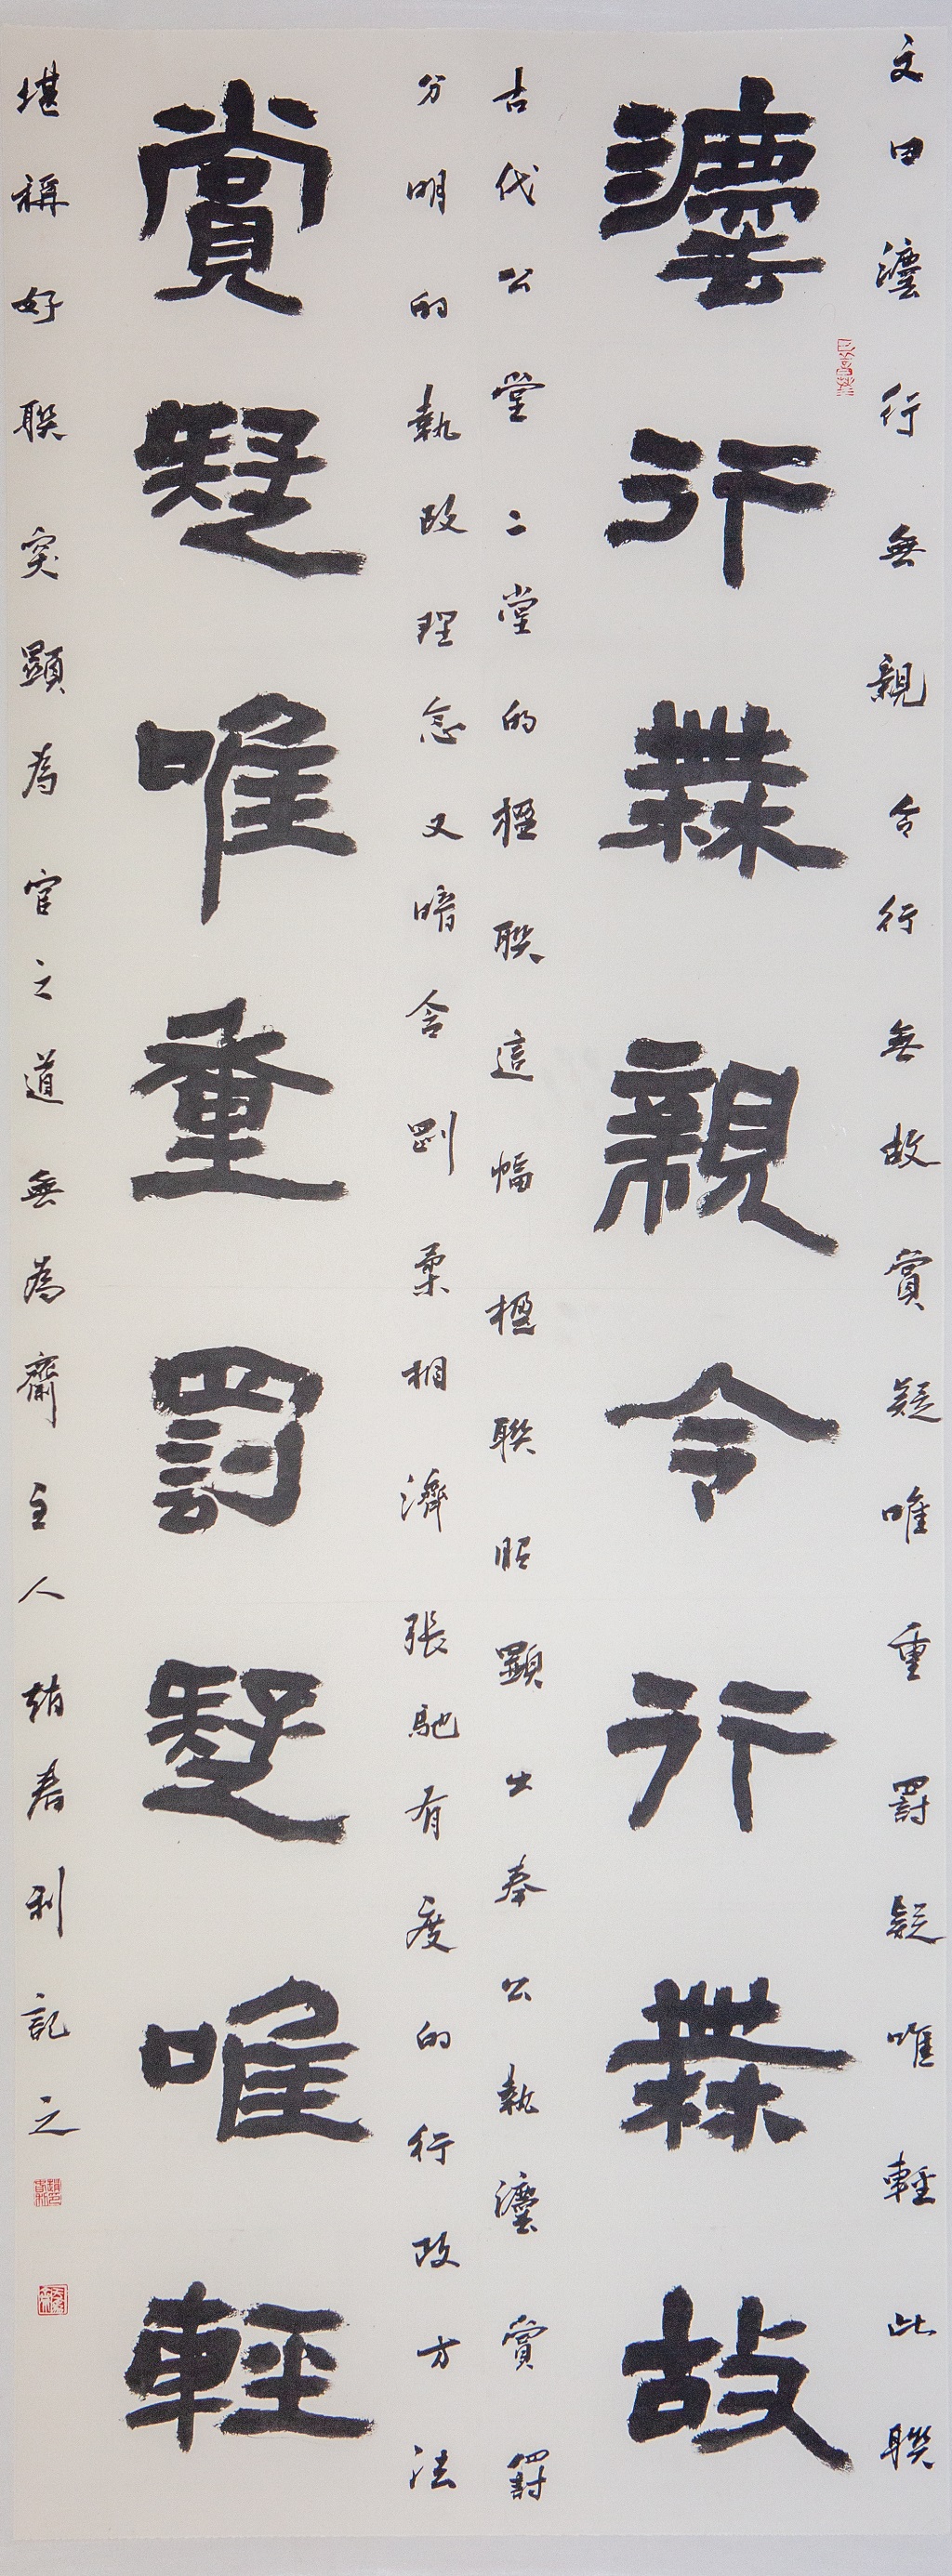 文曰灋行無親令行無故賞疑唯重罰疑唯輕此聯
灋行無親令行無故
古代公堂二堂的楹聯這幅楹聯昭顯出奉公執灋賞罰
分明的執政理念又暗含剛柔相濟張馳有度的行政方法
賞疑唯重罰疑唯輕
堪稱好聯突顯為官之道無為齋主人趙春利記之